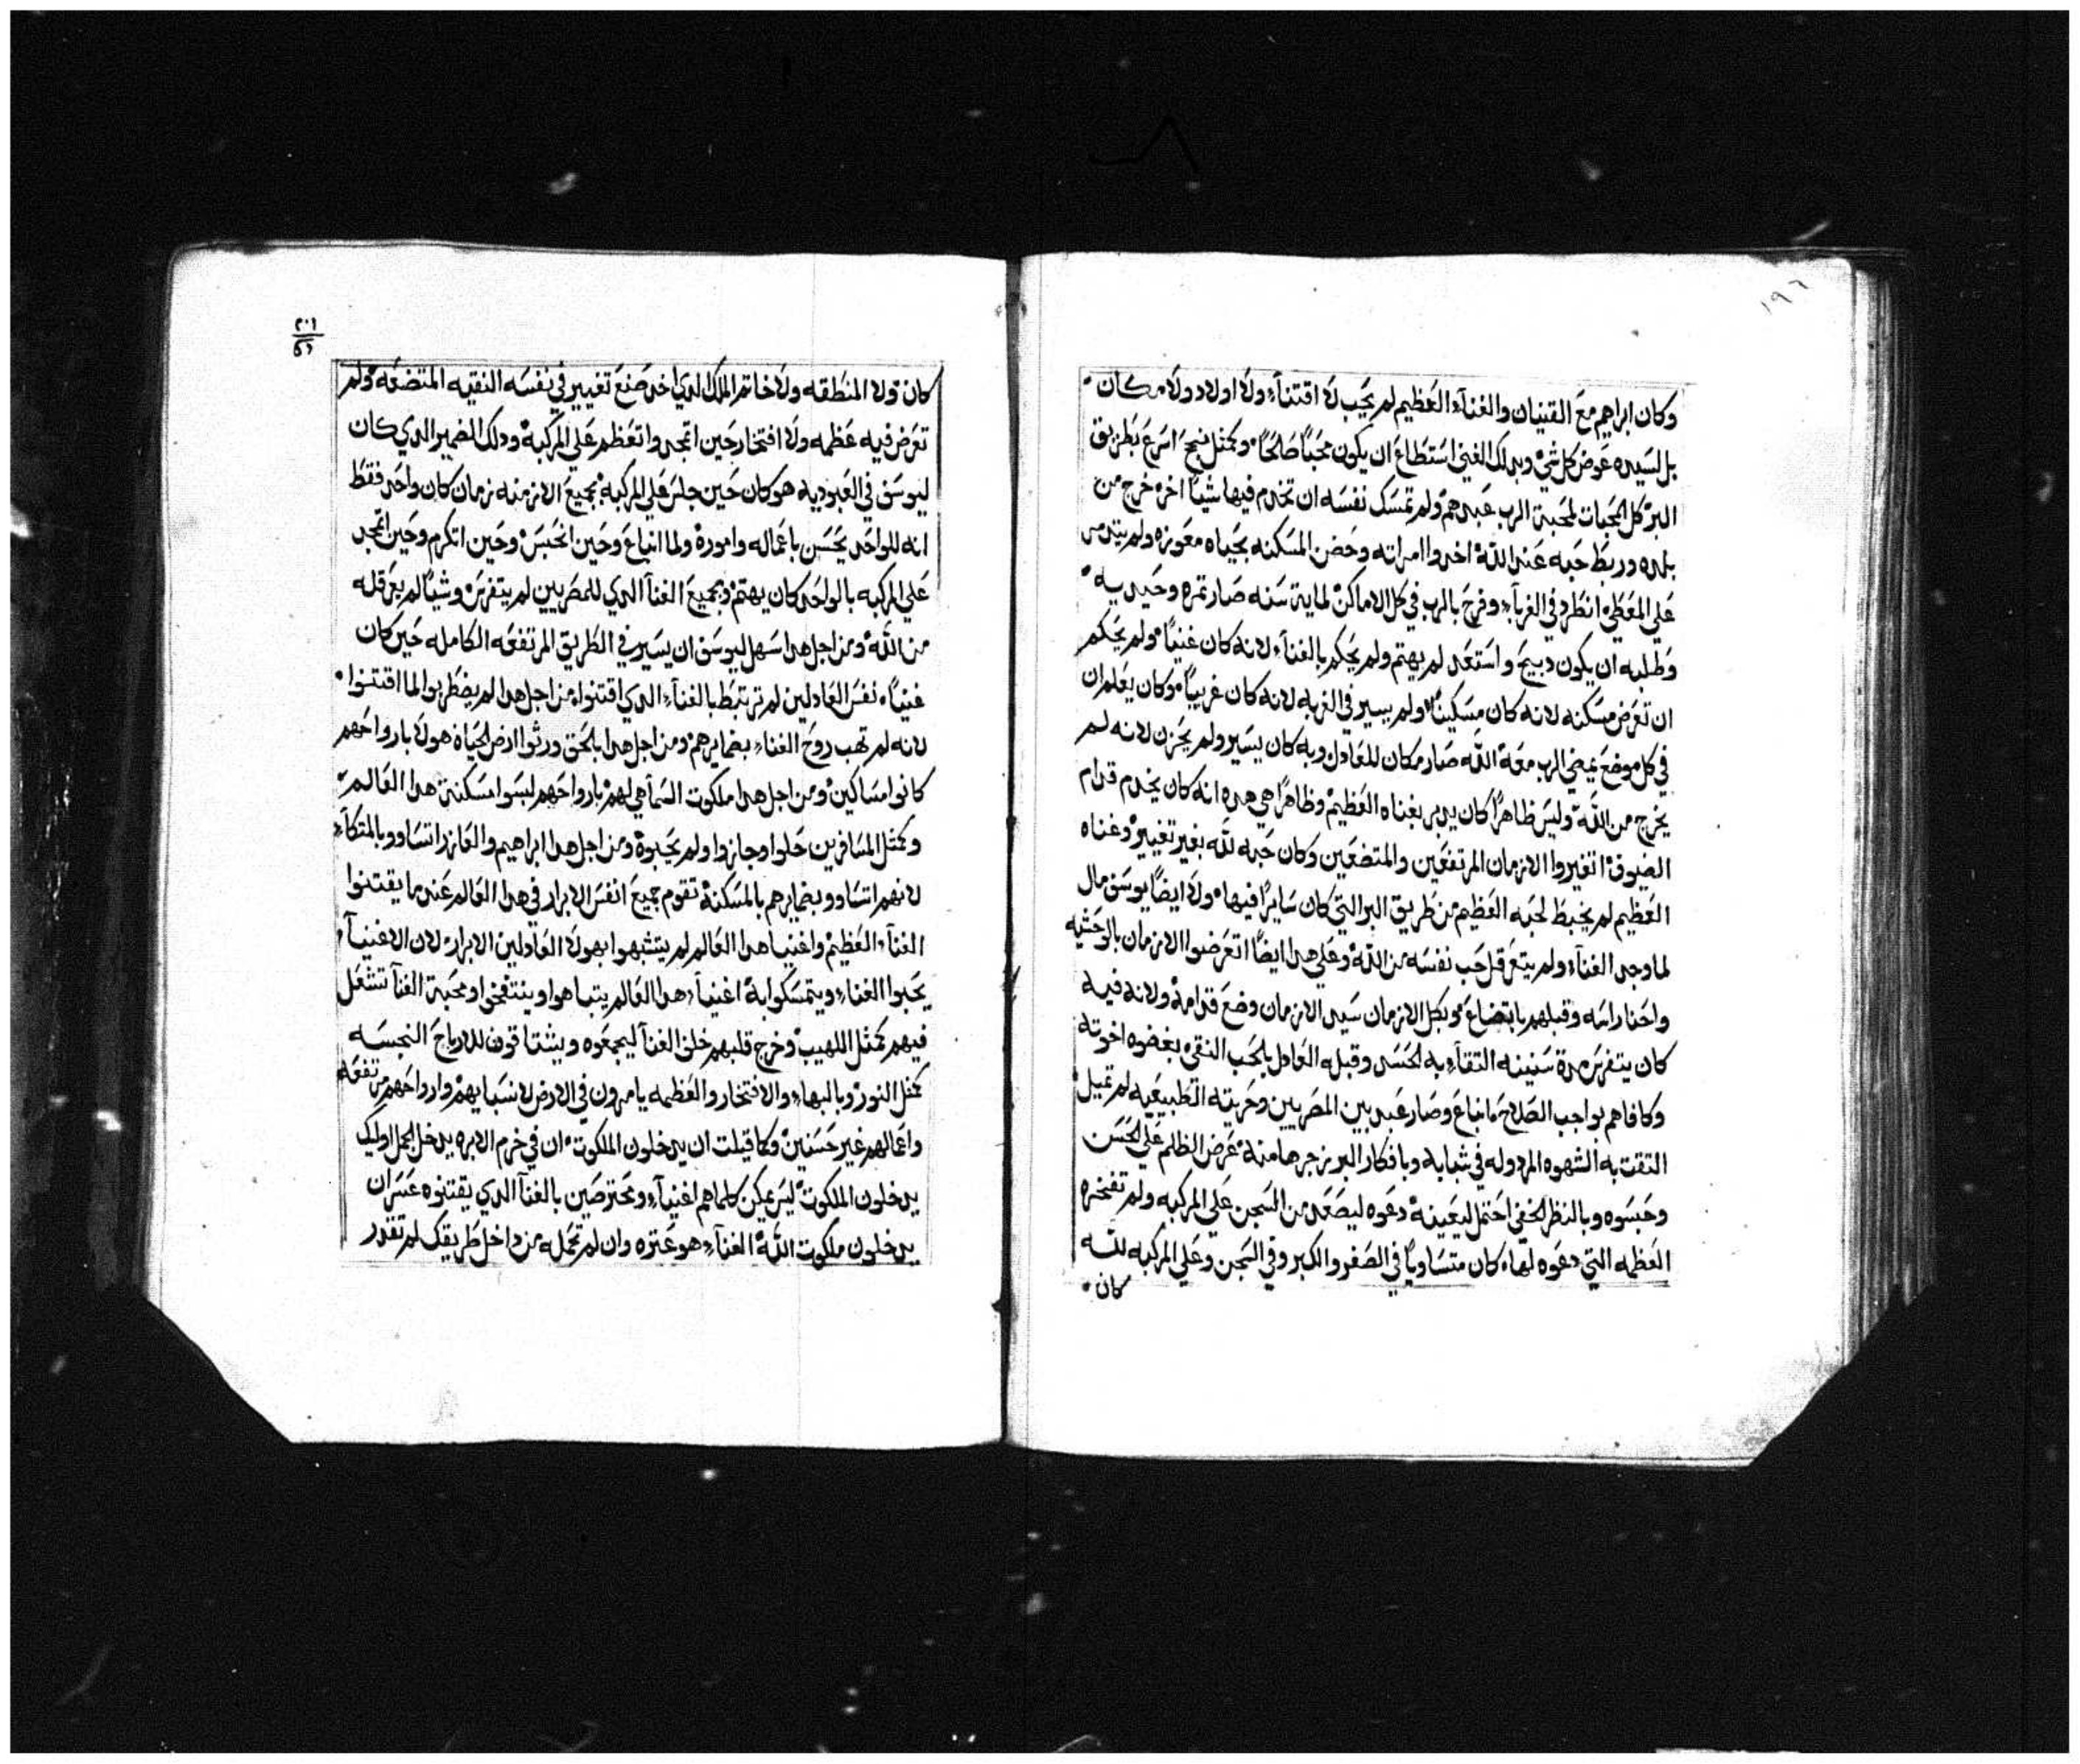 ١٩٦
وكان ابراهيم مع القينيان والغنآء العظيم لم يحب لا اقتنآء ولا اولاد ولا مكان
بل لسيده عوض كل شي وبدلك الغني استطاع ان يكون محبًا صالحًا وكمثل اسرع بطريق
البر كل الجبات لمحبة الرب عبدهم ولم تمسك نفسه ان تخدم فيها شيًا اخر خرج من
بلده وربط حبه عند الله اخد وا امراته وحضن المسكنه بحياه معوزه ولم
علي المعطي انطرد في الغربآء وفرح بالرب في كل الاماكن لماية سنه صار تمره وحيديه
وطلبه ان يكون دبيح واستعد لم يهتم ولم يحكم بالغنآء لانه كان غنيًا ولم يحكم
ان تعرض مسكنه لانه كان مسكينًا ولم يسير في الغربه لانه كان غريبًا وكان يعلم ان
في كل موضع يمضي الرب معه الله صار مكان للعادل وبه كان يسير ولم يحزن لانه لم
يخرج من الله وليس ظاهرًا كان يدبر بغناه العظيم وظاهرًا هي هده انه كان يخدم قدام
الضيوف اتغيروا الازمان المرتفعين والمتضعين وكان حبه لله بغير تغيير وغناه
العظيم لم يخبط لحبه العظيم من طريق البر التي كان سايرًا فيها ولا ايضًا يوسف مال
لما وجد الغنآء ولم يتعرقل حب نفسه من الله وعلي هدا ايضًا اتعرضوا الازمان بالوحشيه
واحنا راسه وقبلهم باتضاع وبكل الازمان سيد الازمان وضع قدامه ولانه فيه
كان يتفرس مدة سنينه التقآء به الحسد وقبله العادل بالحب النقي بغضوه اخوته
وكافاهم بواجب الصلاح انباع وصار عبد بين المصريين وحريته الطبيعيه لم تميل
التقت به الشهوه المردوله في شبابه وبافكار البر زجرها منه عرض الظلم علي الحسن
وحبسوه وبالنظر الخفي احتمل ليعينه دعوه ليصعد من السجن علي المركبه ولم تفخره
العظمه التي دعوه لها كان متساويًا في الصغر والكبر وفي السجن وعلي المركبه لله
كان
٢٠١
كان ولا المنطقه ولا خاتم الملك الدي اخد صنع تغيير في نفسه النقيه المتضعه ولم
تعرض فيه عظمه ولا افتخار حين اتمجد واتعظم علي المركبه ودلك الضمير الدي كان
ليوسف في العبوديه هو كان حين جلس علي المركبه بجميع الازمنه زمان كان واحد فقط
انه للواحد يحسن باعماله واموره ولما انباع وحين انحبس وحين اتكرم وحين اتمجد
علي المركبه بالواحد كان يهتم وبجميع الغنآ الدي للمصريين لم يتفرس وشيًا لم يعرقله
من الله ومن اجل هدا سهل ليوسف ان يسير في الطريق المرتفعه الكامله حين كان
غنيًا نفس العادلين لم ترتبط بالغنآء الدي اقتنوا من اجل هدا لم يضطربوا لما اقتنوا
لانه لم تهب روح الغناء بضمايرهم ومن اجل هدا بالحق ورثوا ارض الحياة هولا بارواحهم
كانوا مساكين ومن اجل هدا ملكوت السمآ هي لهم بارواحهم لبسوا مسكنة هدا العالم
وكمثل المسافرين حلوا وجازوا ولم يحبوه ومن اجل هدا ابراهيم والعازر اتساووا بالمتكآء
لانهم اتساووا بضمايرهم بالمسكنه تقوم جميع انفس الابرار في هدا العالم عند ما يقتنوا
الغنآء العظيم واغنيا هدا العالم لم يتشبهوا بهولا العادلين الابرار لان الاغنيآ
يحبوا الغناء ويتمسكوا به اغنيآء هدا العالم يتباهوا وينتفخوا ومحبة الغنآ تشغل
فيهم كمثل اللهيب وخرج قلبهم خلف الغنآ ليجمعوه ويشتاقون للارباح النجسه
كمثل النور وبالبهاء والافتخار والعظمه يامرون في الارض لانسبايهم وارواحهم مرتفعه
واعمالهم غير حسنين وكما قيلت ان يدخلون الملكوت ان في خرم الابره يدخل الجمل اوليك
يدخلون الملكوت ليس يمكن كلما هم اغنيآء ومحترصين بالغنآ الدي يقتنوه عسر ان
يدخلون ملكوت الله الغنآء هو عتره وان لم تحمله من داخل طريقك لم تقدر